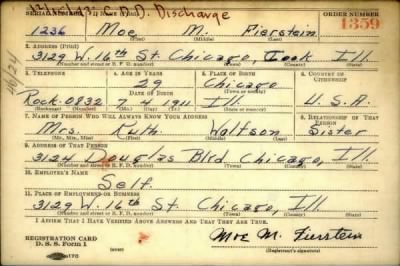 C.D.D. Discharge
SERIAL NUMBER 1. NAME (Print) ORDER NUMBER
1236 Moe M. Fierstein 1359
(First) (Middle) (Last)
2. ADDRESS (Print)
3129 W. 16th St Chicago, Cook Ill.
(Number and street or R. F. D. number) (Town) (County) (State)
3. TELEPHONE 4. AGE IN YEARS 5. PLACE OF BIRTH 6. COUNTRY OF CITIZENSHIP
29 Chicago
DATE OF BIRTH (Town or county)
Rock. 0832 7 4 1911 Ill. U.S.A.
(Mo.) (Day) (Yr.) (State or country)
7. NAME OF PERSON WHO WILL ALWAYS KNOW YOUR ADDRESS 8. RELATIONSHIP OF THAT PERSON
Mrs. Ruth Waltson Sister
(Mr., Mrs., Miss) (First) (Middle) (Last)
9. ADDRESS OF THAT PERSON
3124 Douglas Blrd Chicago, Ill.
(Number and street or R. F. D. number) (Town) (County) (State)
10. EMPLOYER'S NAME
Self.
11. PLACE OF EMPLOYMENT OR BUSINESS
3129 W. 16th St. Chicago, Ill
(Number and street or R. F. D. number) (Town) (County) (State)
I AFFIRM THAT I HAVE VERIFIED ABOVE ANSWERS AND THAT THEY ARE TRUE.
REGISTRATION CARD
D. S. S. Form 1 Moe M. Fierstein
(Registrant's signature)